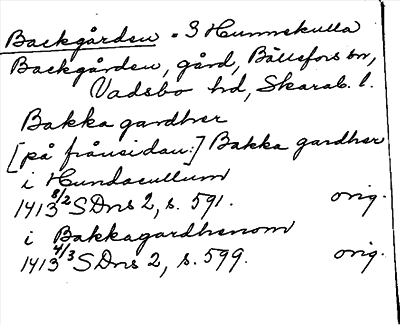 Backgården - 3 Hunnekulla
Backgården, gård, Bällefors sn,
Vadsbo hd, Skarab. l.
Bakka gardher
[på frånsidan:] Bakka gardher
i Hundacullum
1413 8/2 SDns 2, s. 591. orig.
i Bakkagardhenom
1413 4/3 SDns 2, s. 599. orig.